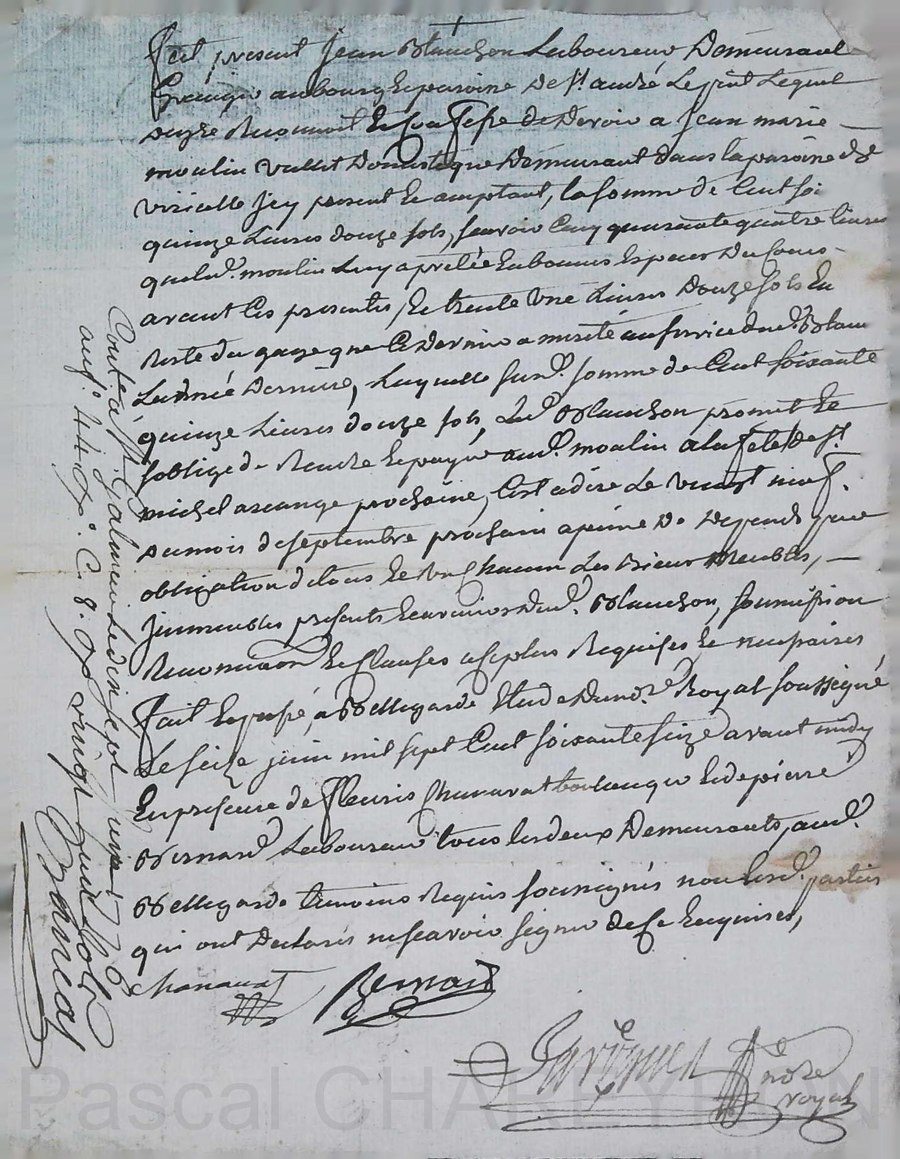 Fut présent Jean Blanchon Laboureur Demeurant
au bourg & paroisse De st. andré Le puit Lequel
De gré Reconnoit & Confesse de Devoir a Jean marie
moulin vallet Domestique Demeurant dans la paroisse de
viricelle Icy present & acceptant, la somme de Cent soi
quinze Livres douze sols, savoir Cent quarante quatre livres
que led. moulin Luy a pretée En bonnes Especes Du Cours
avant Ces presentes, Et trente une Livres Douze sols En
Reste du gage que Ce Dernier a merité au service dud. Blan
L'année Derniere, Laquelle susd. somme de Cent soixante
quinze Livres douze sols, Led. Blanchon promet &
s'oblige de Rendre & payer aud. moulin a la fete de st.
michel arcange prochaine, C'est a dire Le vingt neuf.
Du mois de septembre prochain a peine De Depends
obligation de tous & Un Chacun Les Biens Meubles,
Immeubles presents & avenirs dud. Blanchon, soumission
Renonciation & Clauses Requises & necessaires
Fait & passé, a Bellegarde Etude Du nore. Royal soussigné
Le seize juin mil sept Cent soixante seize avant midy
En presence de fleuris Chanavat boulanger & de pierre
Bernard Laboureur tous Les deux Demeurants, aud.
Bellegarde temoins Requis soussignés non Lesd. parties
qui ont Declaré ne scavoir signer de Ce Enquises,
Chanavat Bernard
nore
royal
Controlé a st. Galmier Le dix sept juin 1776
Vingt huit sols
Pascal CHAREYRON